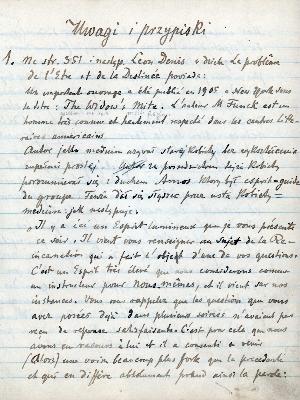 Uwagi i przypiski
1. Na str. 351 i następ. Léon Denis w dziele Le problème
de l'Etre et de la Destinée powiada:
Un important ouvrage a été publié en 1905 à New York sous
le titre: The Widow's Mite. L'auteur M. Funck est un
homme très connu et hautement respecté dans les centres litté-
raires américains
Autor jako medium używał starej kobiety bez wykształcenia
zupełnie prostej. za pośrednictwem tejże kobiety
porozumiewał się z duchem Amos który był esprit-guide
du groupe. Ten duch się przez usta kobiety-
medium jak następuje:
« Il y a ici un Esprit lumineux que je vous présente
ce soir. Il vient vous renseigner au sujet de la Ré-
incarnation qui a fait l'objet d'une de vos questions.
C'est un Esprit très élevé que nous considérons comme
un instructeur pour nous-mêmes, et il vient sur nos
instances. Vous vous rappelez que les questions que vous
avez posées déjà dans plusieurs soirées n'avaient pas
reçu de réponse satisfaisante. C'est pour cela que nous
avons eu recours à lui et il a consenti à venir
(Alors) une voix beaucoup plus forte que la précédente
et qui en diffère absolument prend ainsi la parole: